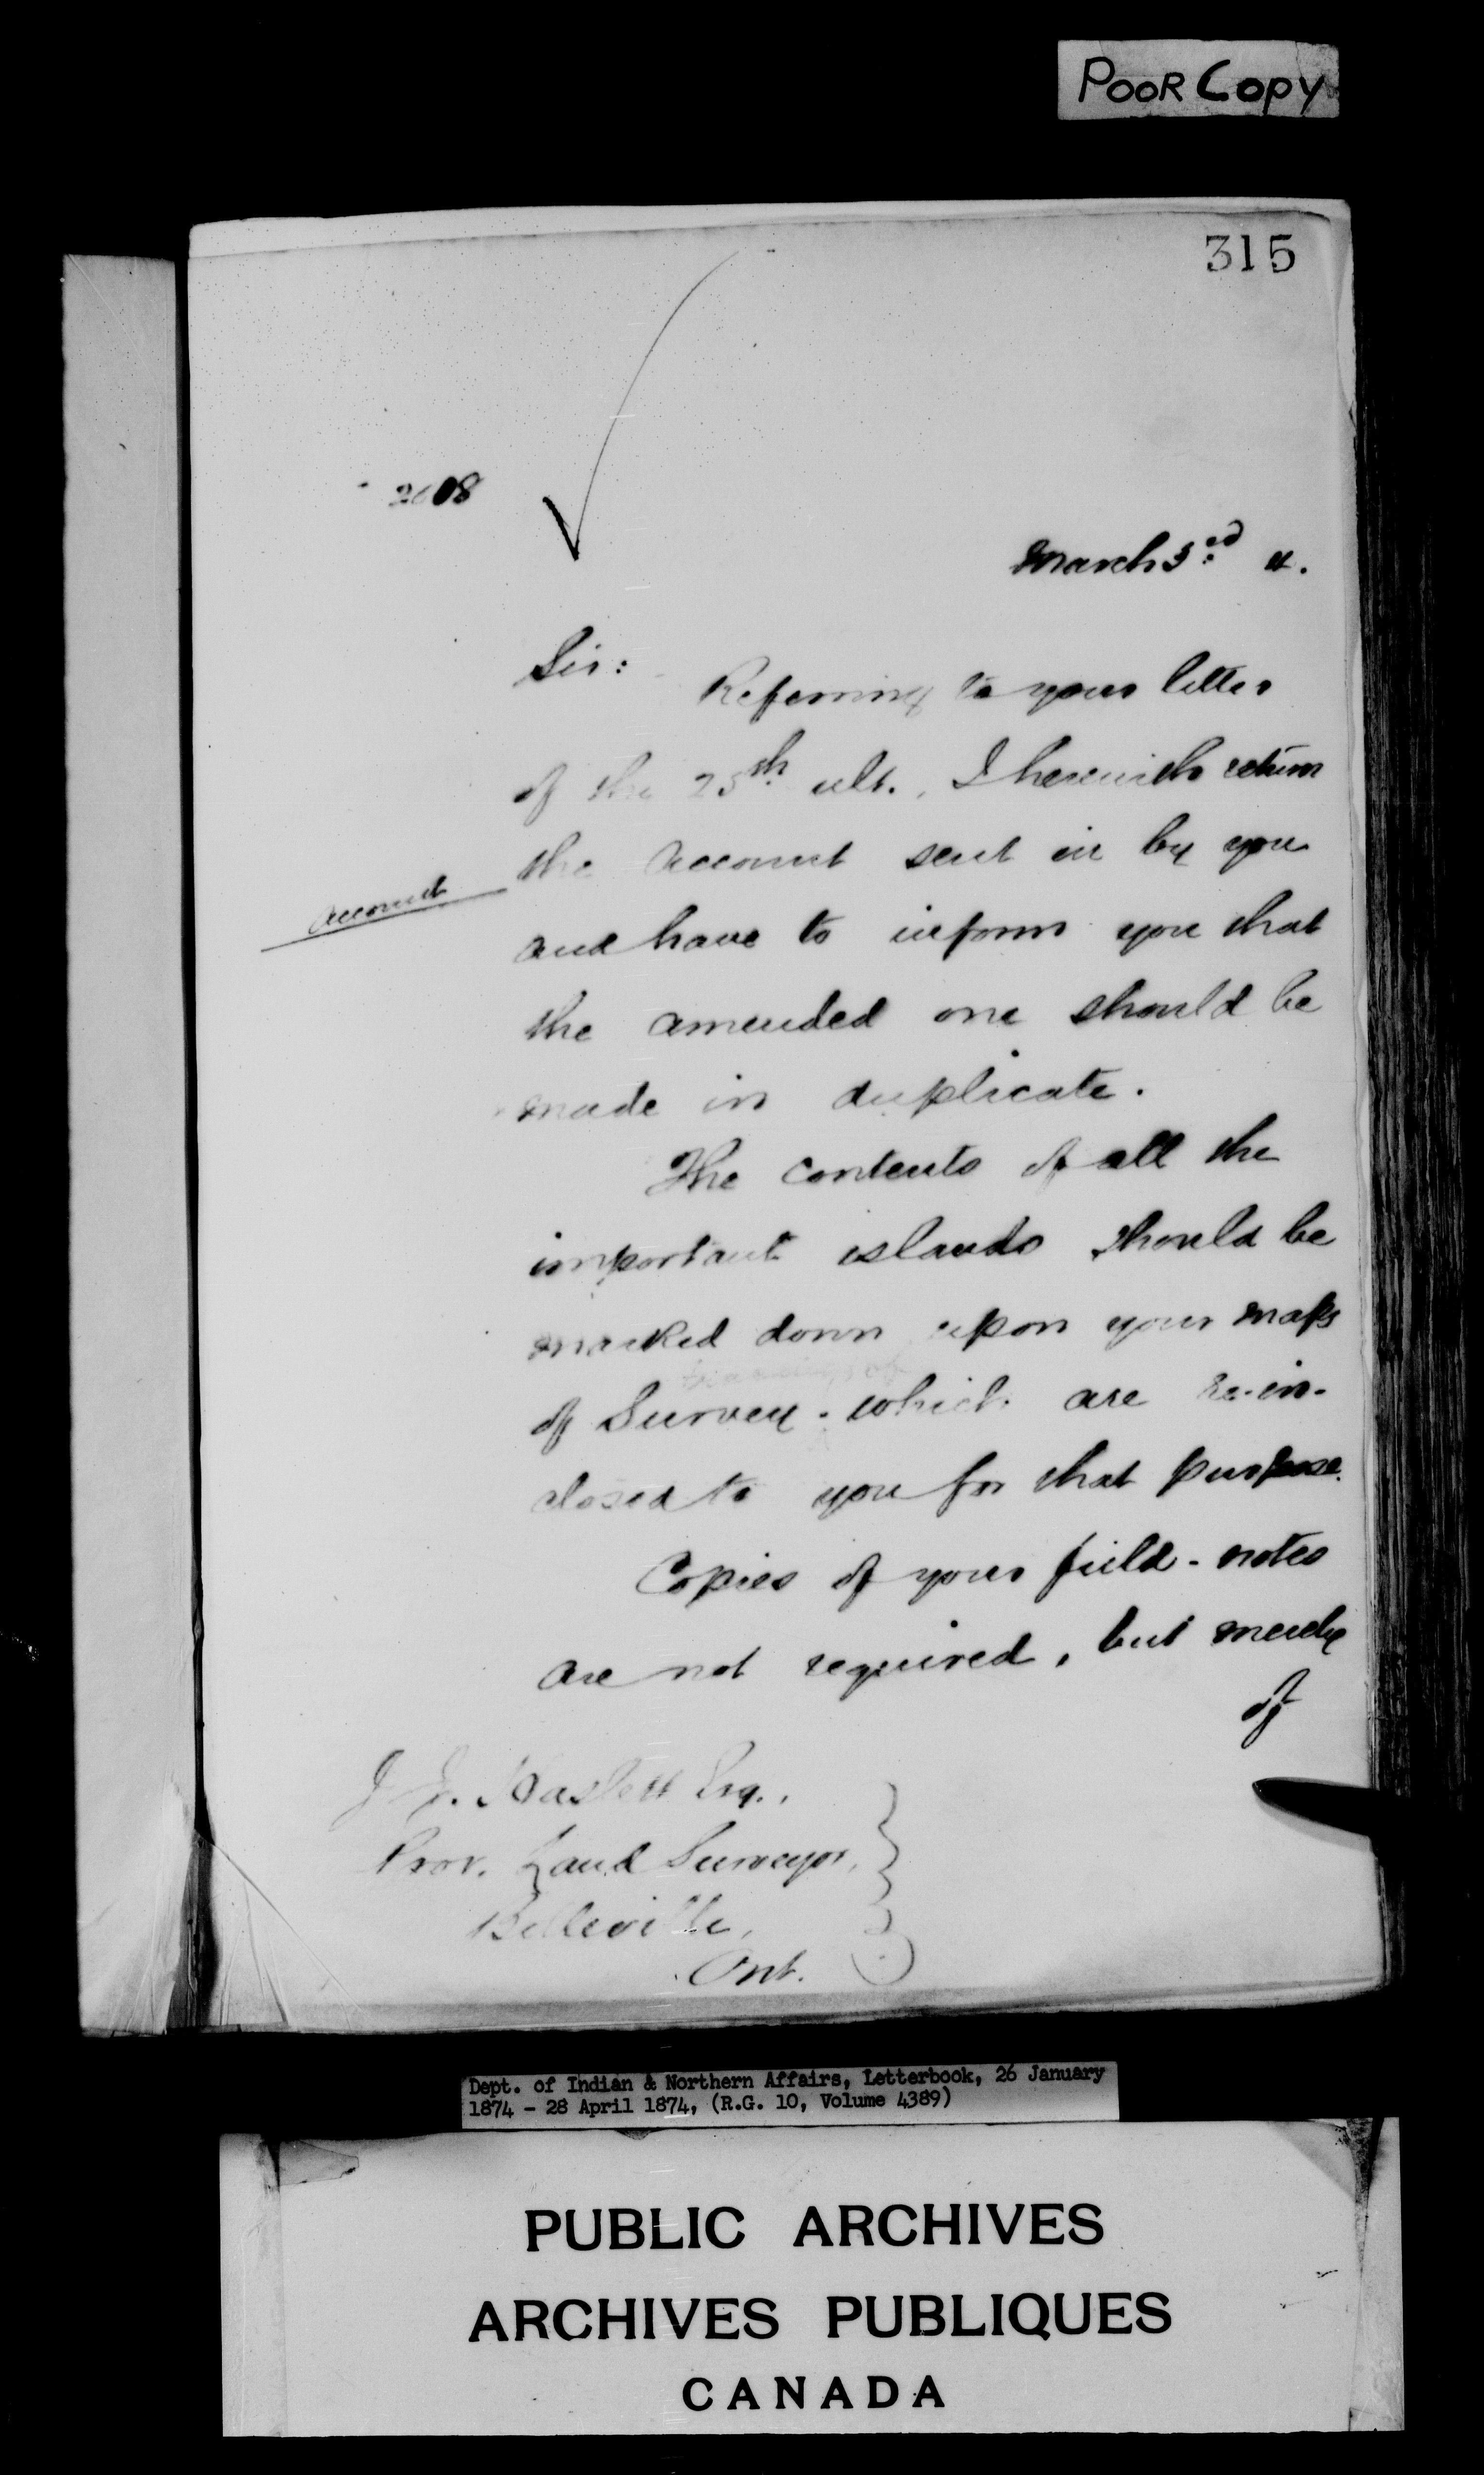 POOR COPY
315
2608
March 3rd 4.
Sir:
Referring to your letter
of the 25th ult., I herewith return
the account sent in by you
account
and have to inform you that
the amended one should be
made in duplicate.
The contents of all the
important islands should be
marked down upon your maps
tracings of
of Survey which are re-in-
closed to you for that purpose.
Copies of your field-notes
are not required, but merely
of
J. J. Haslett Esq.,
Prov. Land Surveyor,
Belleville,
Ont.
Dept. of Indian & Northern Affairs, Letterbook, 26 January
1874 - 28 April 1874, (R.G. 10, Volume 4389)
PUBLIC ARCHIVES
ARCHIVES PUBLIQUES
CANADA